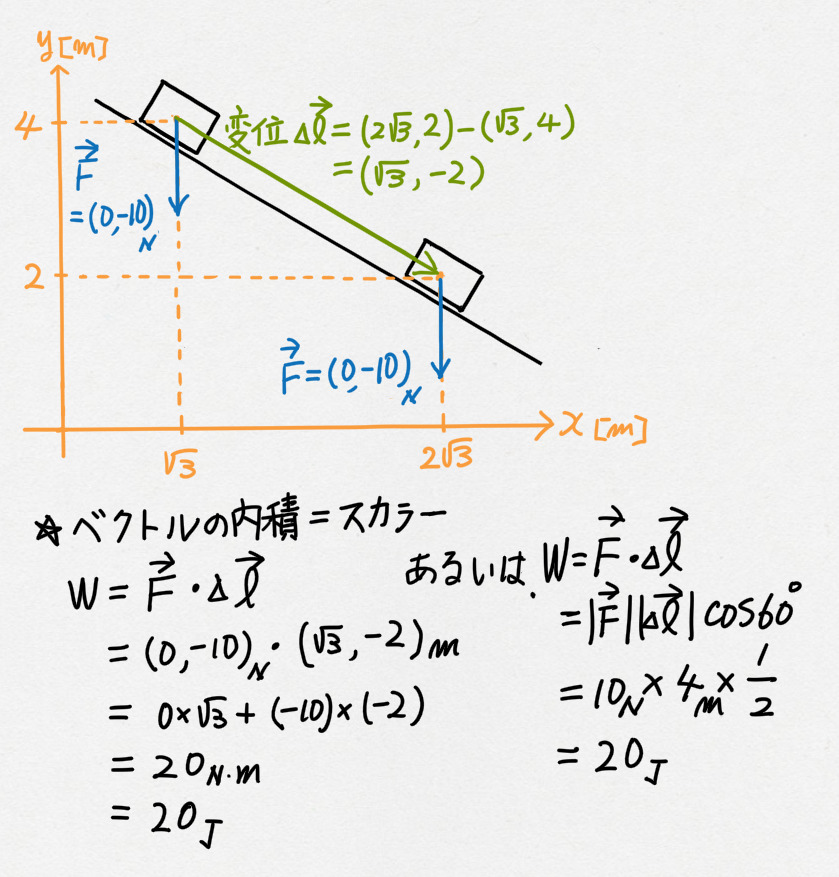 y[m]
4
変位Δl⃗=(2√3,2)-(√3,4)
=(√3,-2)
F⃗
=(0,-10)N
2
F⃗=(0,-10)N
x[m]
√3
2√3
☆ベクトルの内積=スカラー
W=F⃗・Δl⃗
=(0,-10)N・(√3,-2)m
=0×√3+(-10)×(-2)
=20N・m
=20J
あるいは、W=F⃗・Δl⃗
=|F⃗||Δl⃗|cos60°
=10N×4m×1/2
=20J